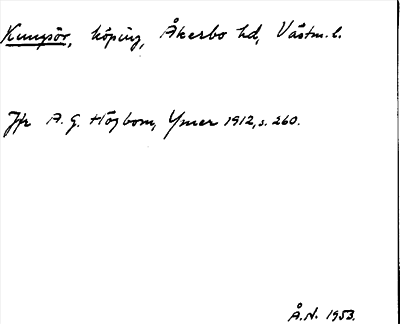 Kungsör, köping, Åkerbo hd, Västm. l.
Jfr A. G. Högbom, Ymer 1912, s. 260.
Å.N. 1953.